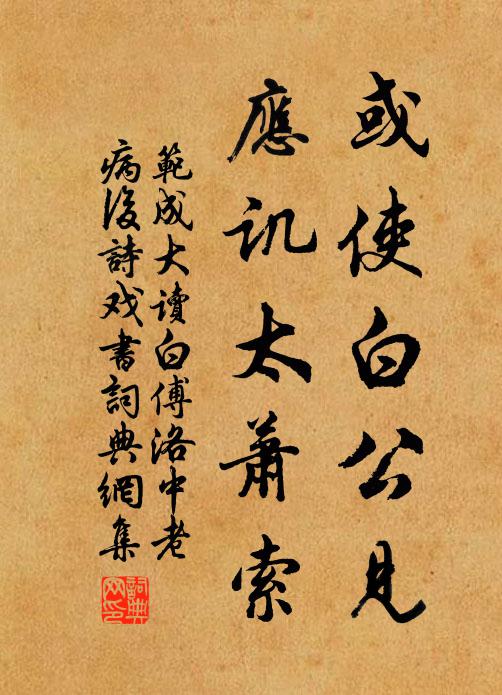 或使白公見
應讥太蕭索
範成大讀白傅洛中老
病後詩戏書詞典網集
詞典
网印